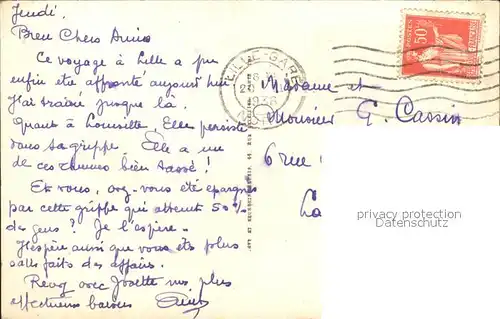 Jeudi.
Bien Chers Amis
Ce voyage à Lille a pu
enfin été affronté aujourd'hui
J'ai traîné jusque là.
Quant à Louisette, Elle persiste
dans sa grippe. Elle a un
de ces rhumes bien tassé !
Et vous, avez-vous été épargnés
par cette grippe qui atteint 50%
des gens ? Je l'espère.
J'espère aussi que vous êtes plus
satisfaits des affaires.
Recevez avec Josette nos plus
affectueux baisers
LILLE-GARE
1936
POSTES
50c
Madame et
Monsieur G. Cassin
6 rue
La
privacy protection
Datenschutz